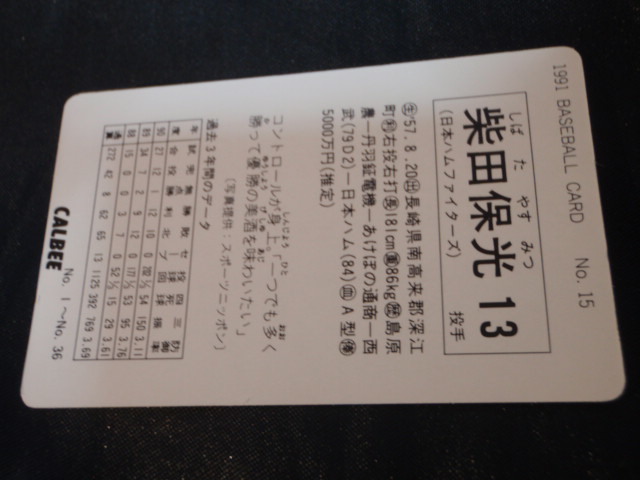 1991 BASEBALL CARD No. 15
しば た やす みつ
柴田保光 13
(日本ハムファイターズ) 投手
㊌'57. 8. 20㊌長崎県南高来郡深江
町㊑右投右打㊑181cm㊑86kg㊑島原
農—丹羽鉦電機—あけぼの通商—西
武(79D2)—日本ハム(84)㊑A型㊑
5000万円(推定)
コントロールが身上。「一つでも多く
勝って優勝の美酒を味わいたい」
(写真提供:スポーツニッポン)
過去3年間のデータ
年度 試合 完投 無点 勝利 敗北 セーブ 投球回 四死球 三振 防御率
90 27 12 1 12 10 0 202 2/3 54 150 3.11
89 34 7 2 9 12 0 177 1/3 53 95 3.76
88 15 0 0 3 7 0 52 1/3 15 29 3.61
通算 272 42 8 62 65 13 1125 392 769 3.69
CALBEE No. 1～No. 36